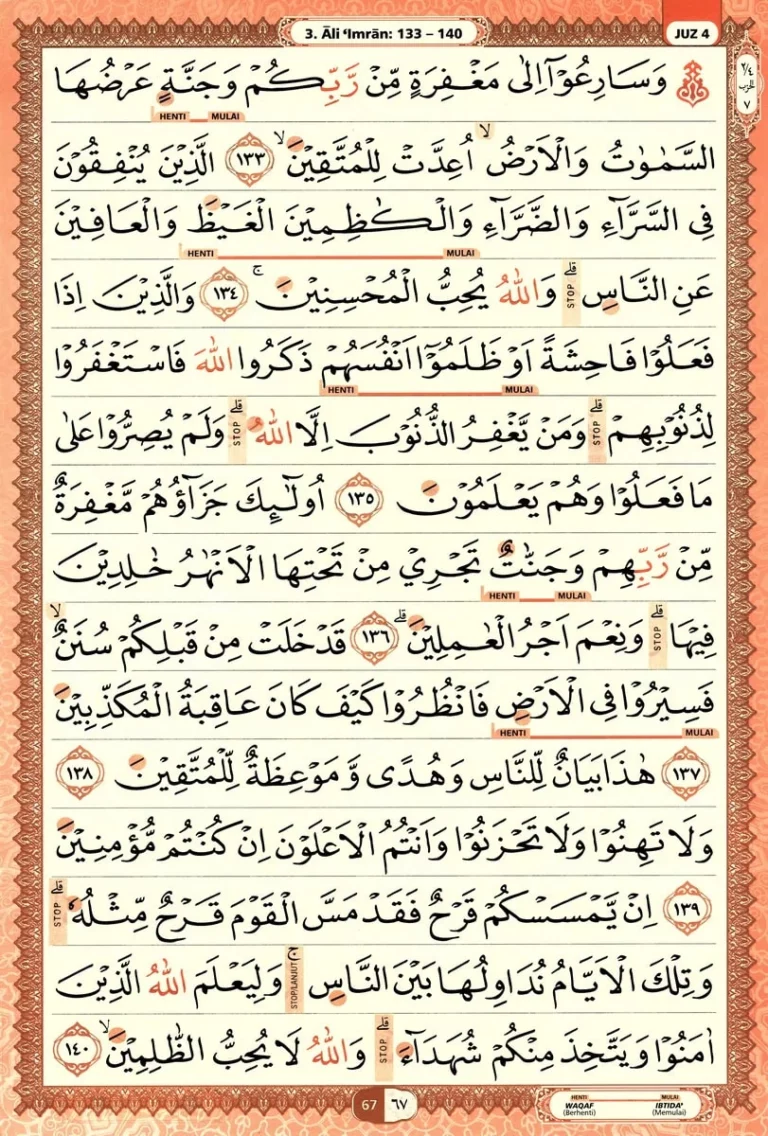 3. Āli ‘Imrān: 133 – 140
JUZ 4
٢/٤
الحزب
٧
وَسَارِعُوْٓا اِلٰى مَغْفِرَةٍ مِّنْ رَّبِّكُمْ وَجَنَّةٍ عَرْضُهَا
HENTI MULAI
السَّمٰوٰتُ وَالْاَرْضُۙ اُعِدَّتْ لِلْمُتَّقِيْنَۙ ١٣٣ الَّذِيْنَ يُنْفِقُوْنَ
فِى السَّرَّۤاءِ وَالضَّرَّۤاءِ وَالْكٰظِمِيْنَ الْغَيْظَ وَالْعَافِيْنَ
HENTI MULAI
عَنِ النَّاسِۗ STOP وَاللّٰهُ يُحِبُّ الْمُحْسِنِيْنَۚ ١٣٤ وَالَّذِيْنَ اِذَا
فَعَلُوْا فَاحِشَةً اَوْ ظَلَمُوْٓا اَنْفُسَهُمْ ذَكَرُوا اللّٰهَ فَاسْتَغْفَرُوْا
HENTI MULAI
لِذُنُوْبِهِمْۗ STOP وَمَنْ يَّغْفِرُ الذُّنُوْبَ اِلَّا اللّٰهُۗ STOP وَلَمْ يُصِرُّوْا عَلٰى
مَا فَعَلُوْا وَهُمْ يَعْلَمُوْنَ ١٣٥ اُولٰۤىِٕكَ جَزَاۤؤُهُمْ مَّغْفِرَةٌ
مِّنْ رَّبِّهِمْ وَجَنّٰتٌ تَجْرِيْ مِنْ تَحْتِهَا الْاَنْهٰرُ خٰلِدِيْنَ
HENTI MULAI
فِيْهَاۗ STOP وَنِعْمَ اَجْرُ الْعٰمِلِيْنَۗ ١٣٦ قَدْ خَلَتْ مِنْ قَبْلِكُمْ سُنَنٌۙ
فَسِيْرُوْا فِى الْاَرْضِ فَانْظُرُوْا كَيْفَ كَانَ عَاقِبَةُ الْمُكَذِّبِيْنَ
HENTI MULAI
١٣٧ هٰذَا بَيَانٌ لِّلنَّاسِ وَهُدًى وَّمَوْعِظَةٌ لِّلْمُتَّقِيْنَ ١٣٨
وَلَا تَهِنُوْا وَلَا تَحْزَنُوْا وَاَنْتُمُ الْاَعْلَوْنَ اِنْ كُنْتُمْ مُّؤْمِنِيْنَ
١٣٩ اِنْ يَّمْسَسْكُمْ قَرْحٌ فَقَدْ مَسَّ الْقَوْمَ قَرْحٌ مِّثْلُهٗۗ STOP
وَتِلْكَ الْاَيَّامُ نُدَاوِلُهَا بَيْنَ النَّاسِۚ STOP/LANJUT وَلِيَعْلَمَ اللّٰهُ الَّذِيْنَ
اٰمَنُوْا وَيَتَّخِذَ مِنْكُمْ شُهَدَاۤءَۗ STOP وَاللّٰهُ لَا يُحِبُّ الظّٰلِمِيْنَۙ ١٤٠
67 ٦٧
HENTI MULAI
WAQAF IBTIDA'
(Berhenti) (Memulai)